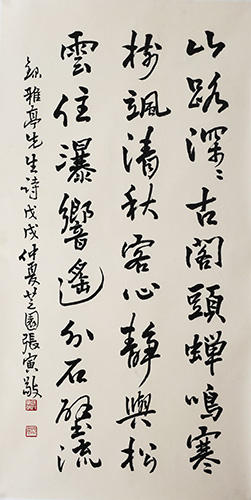 山路深〻古閣頭蝉鳴寒
樹颯清秋客心靜與松
雲住瀑響遙分石壁流
錄雅亭先生詩戊戌仲夏芝園張寅敬